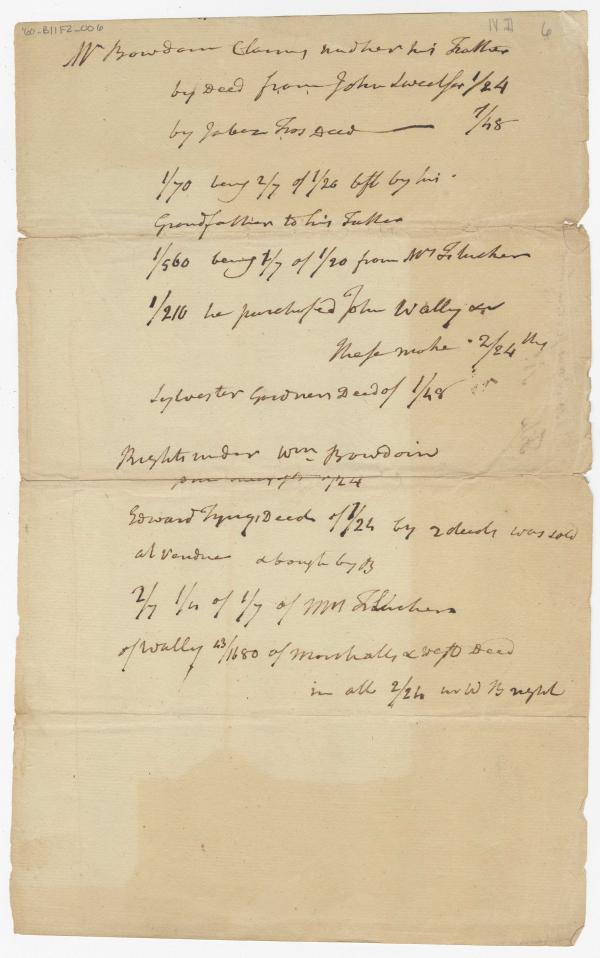 '60-B11F2-006
IV D 6
Mr Bowdoin Claims under his Father
by Deed from John Sweetser 1/24
by Jabez Fox Deed — 1/48
1/70 being 2/7 of 1/20 left by his
Grandfather to his Father
1/560 being 1/7 of 1/20 from Mrs Fluckers
1/210 he purchased John Wally &c
These make 2/24 ths
Sylvester Gardners Deed of 1/48
Rights under Wm Bowdoin
1/24
Edward Tyngs Deeds of 1/24 by 2 deeds was sold
at vendue & bough by B
2/7 1/4 of 1/7 of Mrs Fluckers
of Wally 43/1680 of Marshalls & West Deed
in all 2/24 in W B right